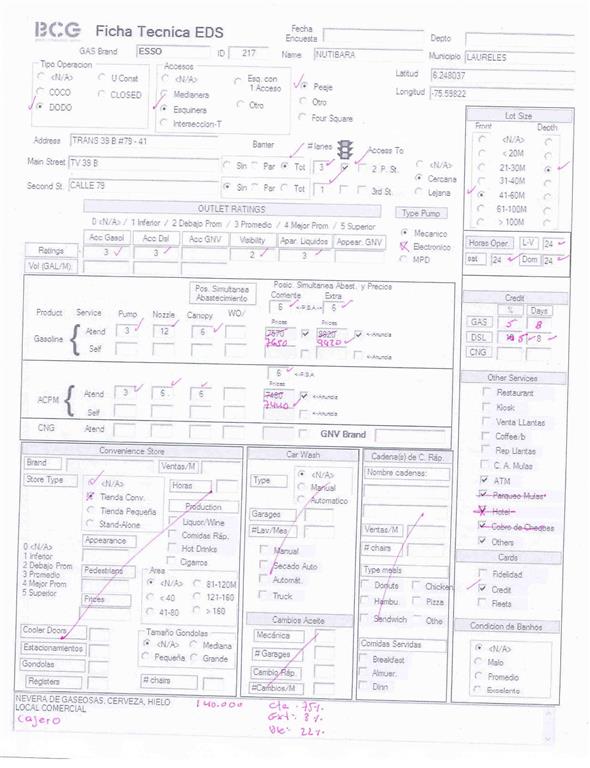 BCG Ficha Tecnica EDS
Fecha Encuesta Depto
GAS Brand ESSO ID 217 Name NUTIBARA Municipio LAURELES
Tipo Operacion
<N/A> U Const
COCO CLOSED
DODO
Accesos
<N/A> Esq. con 1 Acceso
Medianera
Esquinera Otro
Interseccion-T
Peaje
Otro
Four Square
Latitud 6.248037
Longitud -75.59822
Address TRANS 39 B #79 - 41
Barrier # lanes Access To
Main Street TV 39 B Sin Par Tot 3 2 P. St.
Second St. CALLE 79 Sin Par Tot 1 3rd St.
<N/A>
Cercana
Lejana
Lot Size
Front Depth
<N/A>
< 20M
21-30M
31-40M
41-60M
61-100M
> 100M
OUTLET RATINGS
0 <N/A> / 1 Inferior / 2 Debajo Prom / 3 Promedio / 4 Mejor Prom / 5 Superior
Acc Gasol Acc Dsl Acc GNV Visibility Apar. Liquidos Appear. GNV
Ratings 3 3 2 3
Vol (GAL/M)
Type Pump
Mecanico
Electronico
MPD
Horas Oper. L-V 24
sat 24 Dom 24
Pos. Simultanea Abastecimiento
Posic. Simultanea Abast. y Precios
Corriente Extra
6 <-P.S.A-> 6
Product Service Pump Nozzle Canopy WO/ Prices Prices
Gasoline Atend 3 12 6 <-Anuncia
7650 9920
Self
6 <-P.S.A
Prices
ACPM Atend 3 6 6 7490 <-Anuncia
7440
Self
CNG Atend GNV Brand
Credit
% Days
GAS 5 8
DSL 5 8
CNG
Other Services
Restaurant
Kiosk
Venta LLantas
Coffee/b
Rep Llantas
C. A. Mulas
ATM
Parqueo Mulas
Hotel
Cobro de Cheques
Others
Cards
Fidelidad
Credit
Fleets
Condicion de Banhos
<N/A>
Malo
Promedio
Excelente
Convenience Store
Brand Ventas/M
Store Type
<N/A>
Tienda Conv.
Tienda Pequeña
Stand-Alone
Horas
Production
Liquor/Wine
Comidas Ráp.
Hot Drinks
Cigarros
Appearance
0 <N/A>
1 Inferior
2 Debajo Prom
3 Promedio
4 Mejor Prom
5 Superior
Pedestrians
Prices
Area
<N/A> 81-120M
< 40 121-160
41-80 > 160
Cooler Doors
Estacionamientos
Gondolas
Registers
Tamaño Gondolas
<N/A> Mediana
Pequeña Grande
# chairs
Car Wash
Type
<N/A>
Manual
Automatico
Garages
#Lav/Mes
Manual
Secado Auto
Automát.
Truck
Cambios Aceite
Mecánica
# Garages
Cambio Ráp.
#Cambios/M
Cadena(s) de C. Ráp.
Nombre cadenas:
Ventas/M
# chairs
Type meals
Donuts Chicken
Hambu. Pizza
Sandwich Othe
Comidas Servidas
Breakfast
Almuer.
Dinn
NEVERA DE GASEOSAS, CERVEZA, HIELO
LOCAL COMERCIAL
Cajero
140.000
Cte - 75%
Ext: 3%
22%